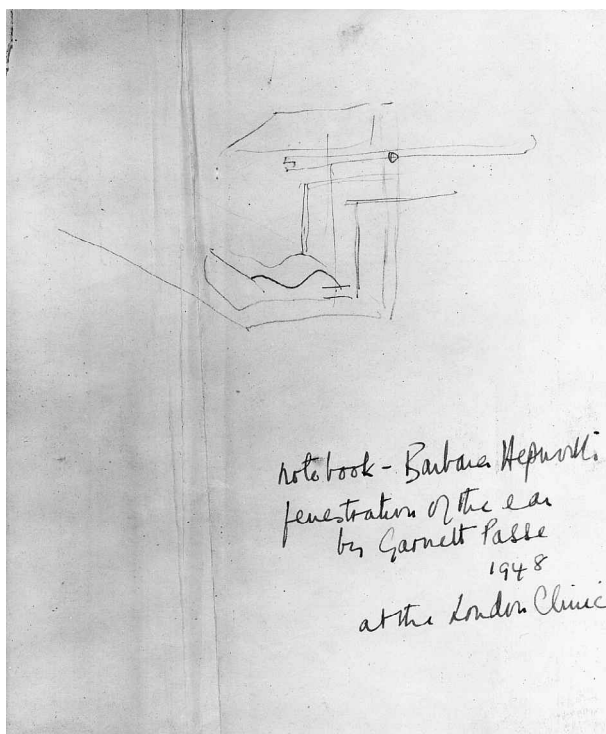 notebook - Barbara Hepworth.
fenestration of the ear
by Garnett Passe
1948
at the London Clinic